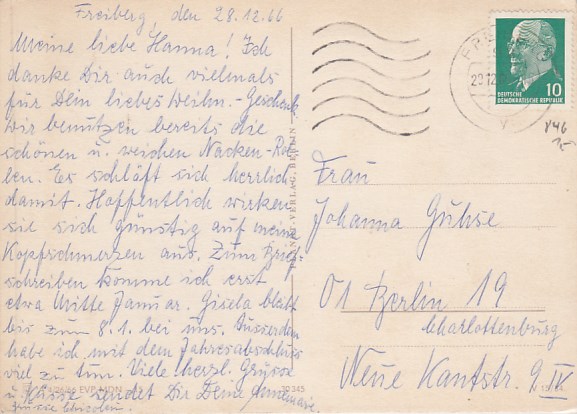 Freiberg, den 28.12.66
Meine liebe Hanna! Ich
danke Dir auch vielmals
für Dein liebes Weihn.-Geschenk.
Wir benutzen bereits die
schönen u. weichen Nacken-Rol-
len. Es schläft sich herrlich
damit. Hoffentlich wirken
sie sich günstig auf meine
Kopfschmerzen aus. Zum Brief-
schreiben komme ich erst
etwa Mitte Januar. Gisela bleibt
bis zum 8.1. bei uns. Ausserdem
habe ich mit dem Jahresabschluss
viel zu tun. Viele herzl. Grüsse
u. Küsse sendet Dir Deine Annemarie.
VERLAG, BERLIN
EVP MDN
10
DEUTSCHE
DEMOKRATISCHE REPUBLIK
Frau
Johanna Guhse
01 Berlin 19
Charlottenburg
Neue Kantstr. 9 IV